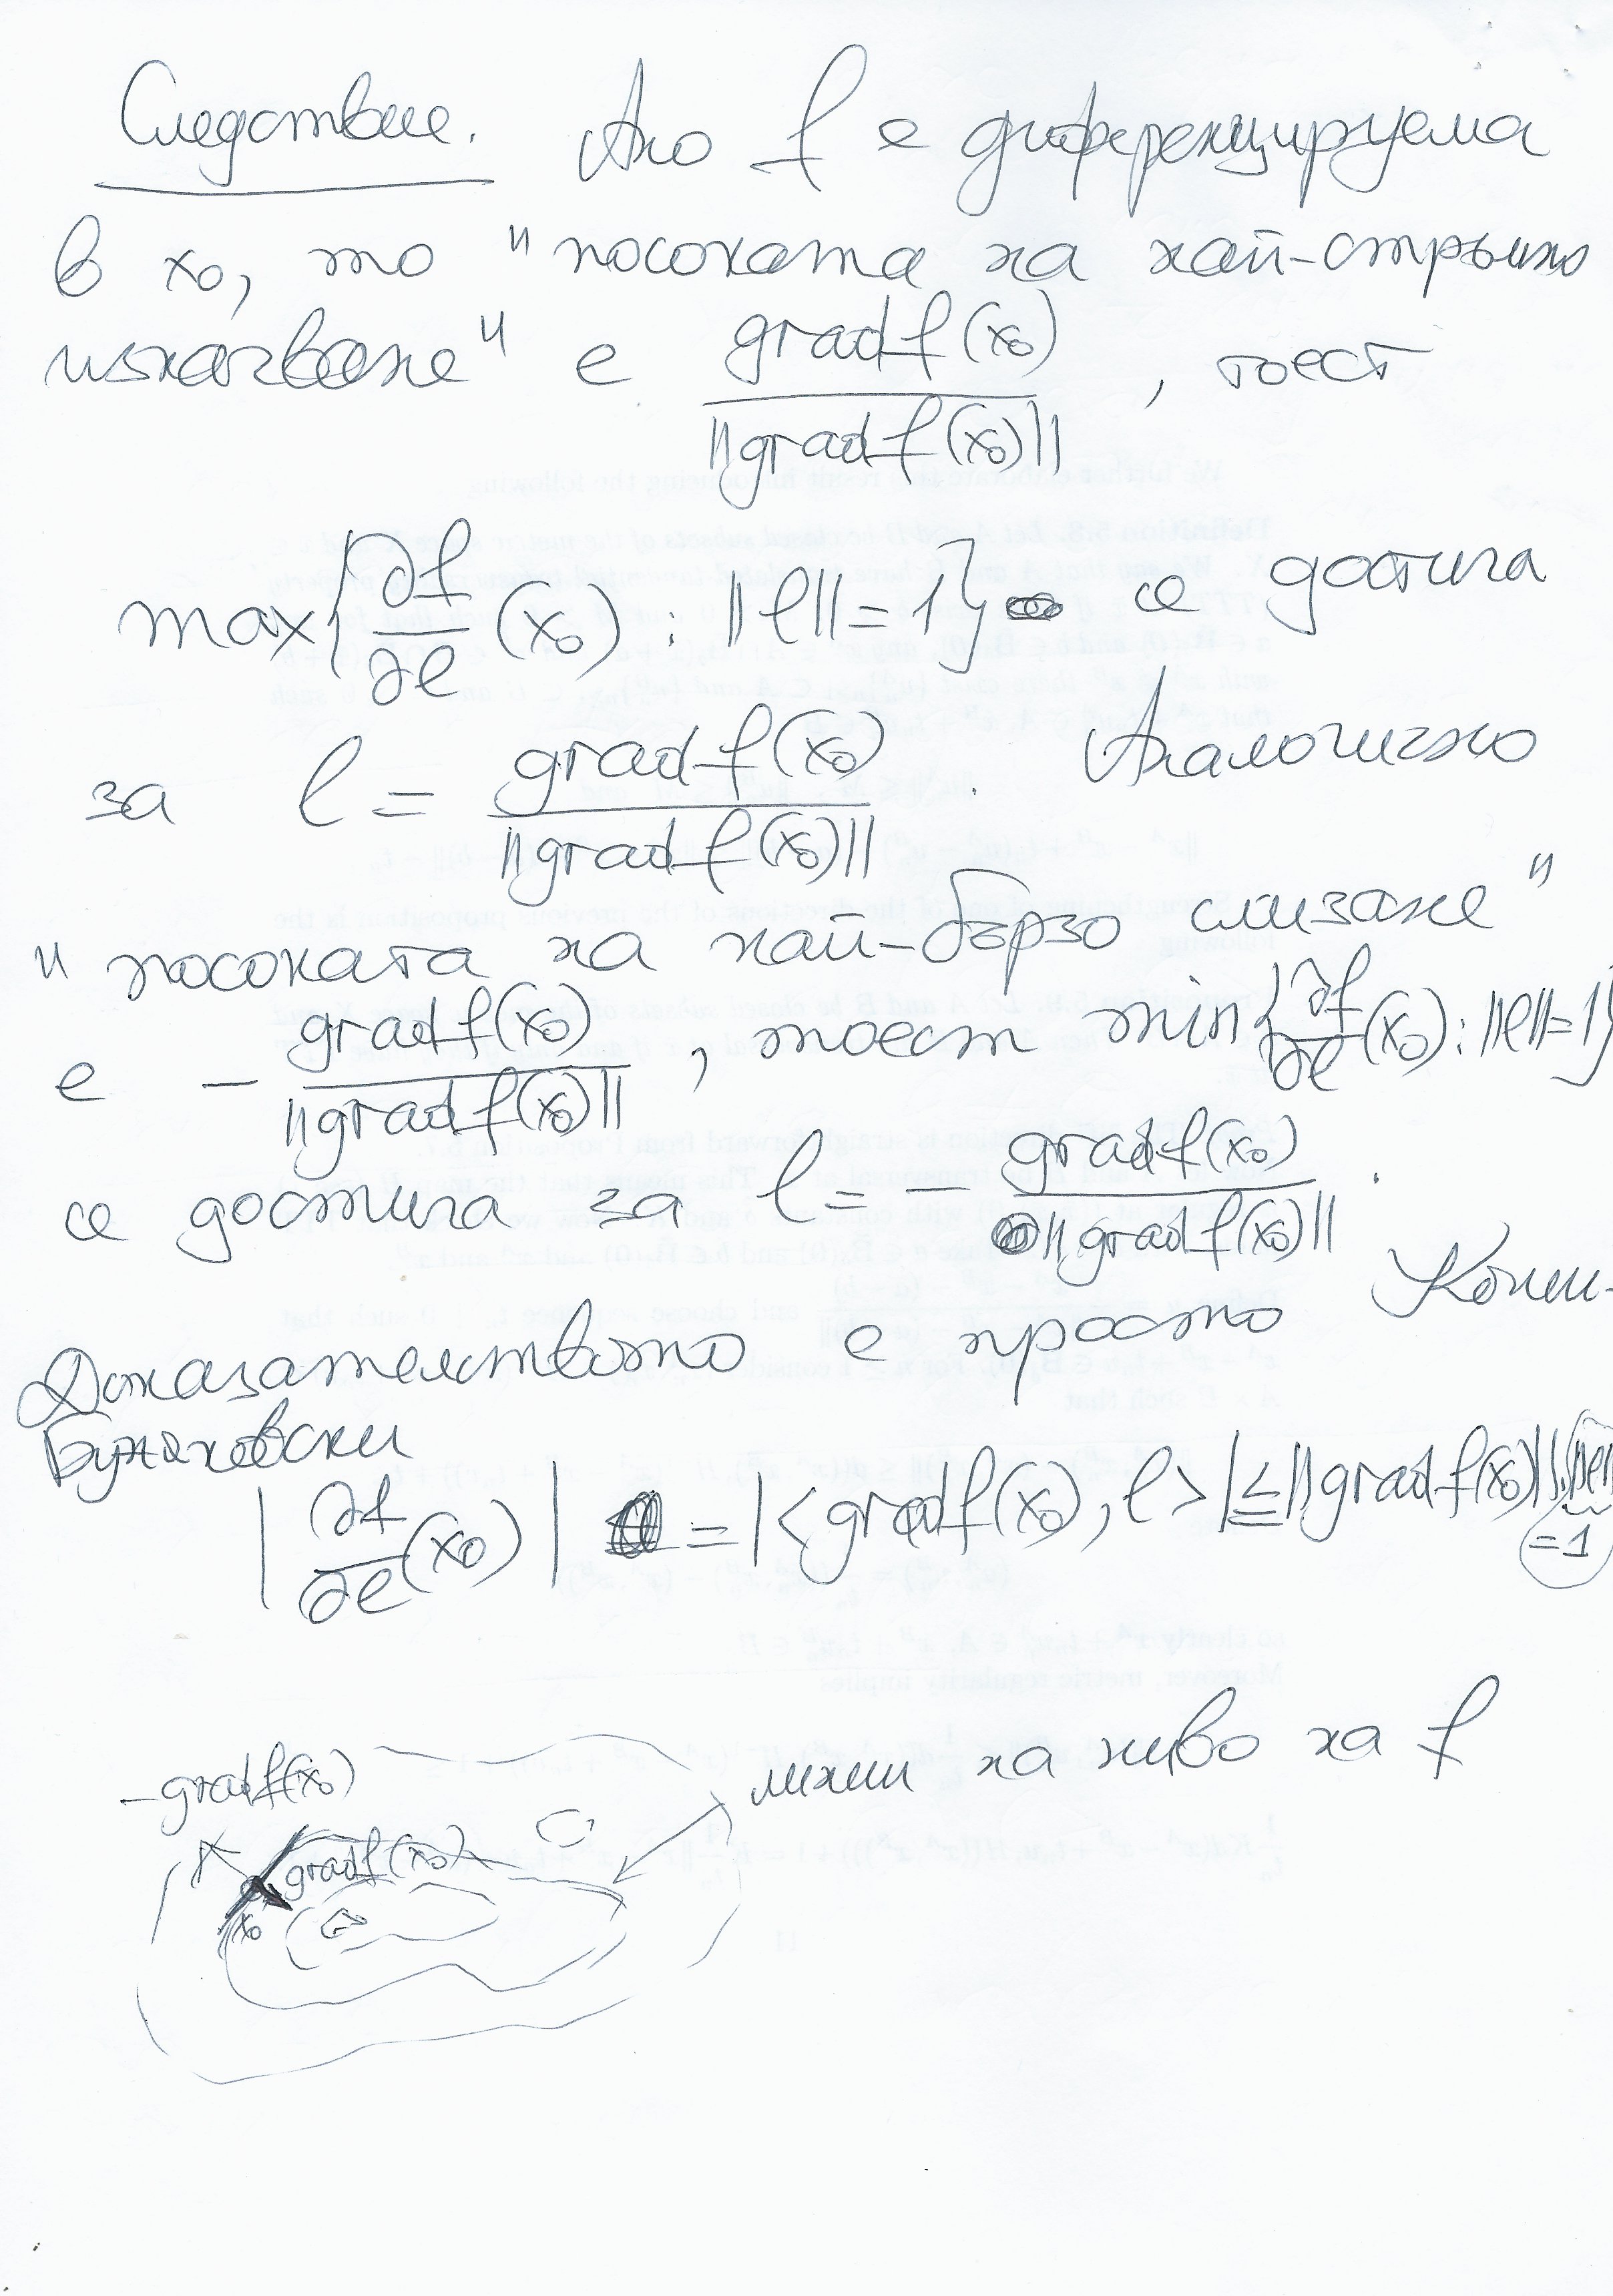 Следствие. Ако f е диференцируема
в x₀, то "посоката на най-стръмно
изкачване" е grad f(x₀) / ||grad f(x₀)||, тоест
max{∂f/∂ℓ (x₀) : ||ℓ|| = 1} се достига
за ℓ = grad f(x₀) / ||grad f(x₀)||. Аналогично
"посоката на най-бързо слизане"
е − grad f(x₀) / ||grad f(x₀)||, тоест min{∂f/∂ℓ (x₀) : ||ℓ|| = 1}
се достига за ℓ = − grad f(x₀) / ||grad f(x₀)||.
Доказателството е просто Коши-
Буняковски
|∂f/∂ℓ (x₀)| = |<grad f(x₀), ℓ>| ≤ ||grad f(x₀)||.||ℓ||
=1
линии на ниво на f
−grad f(x₀)
grad f(x₀)
x₀